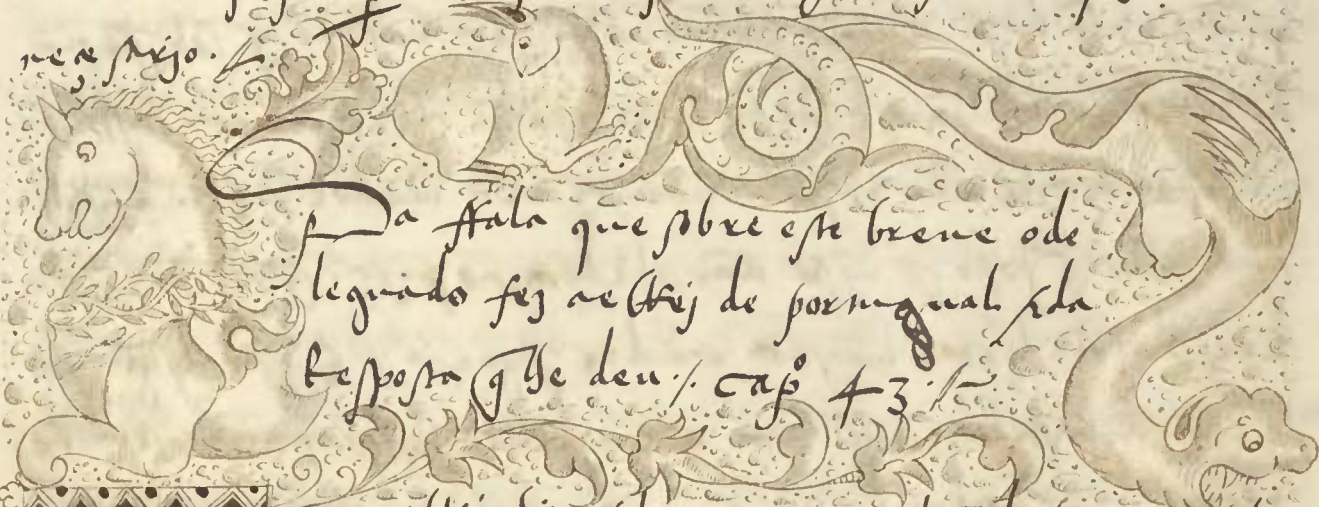 neçesarjo ./
Da ffala que sobre este breue o de
leguado fez a elRej de portugual / e da
Resposta q lhe deu ./. capº 43 ./